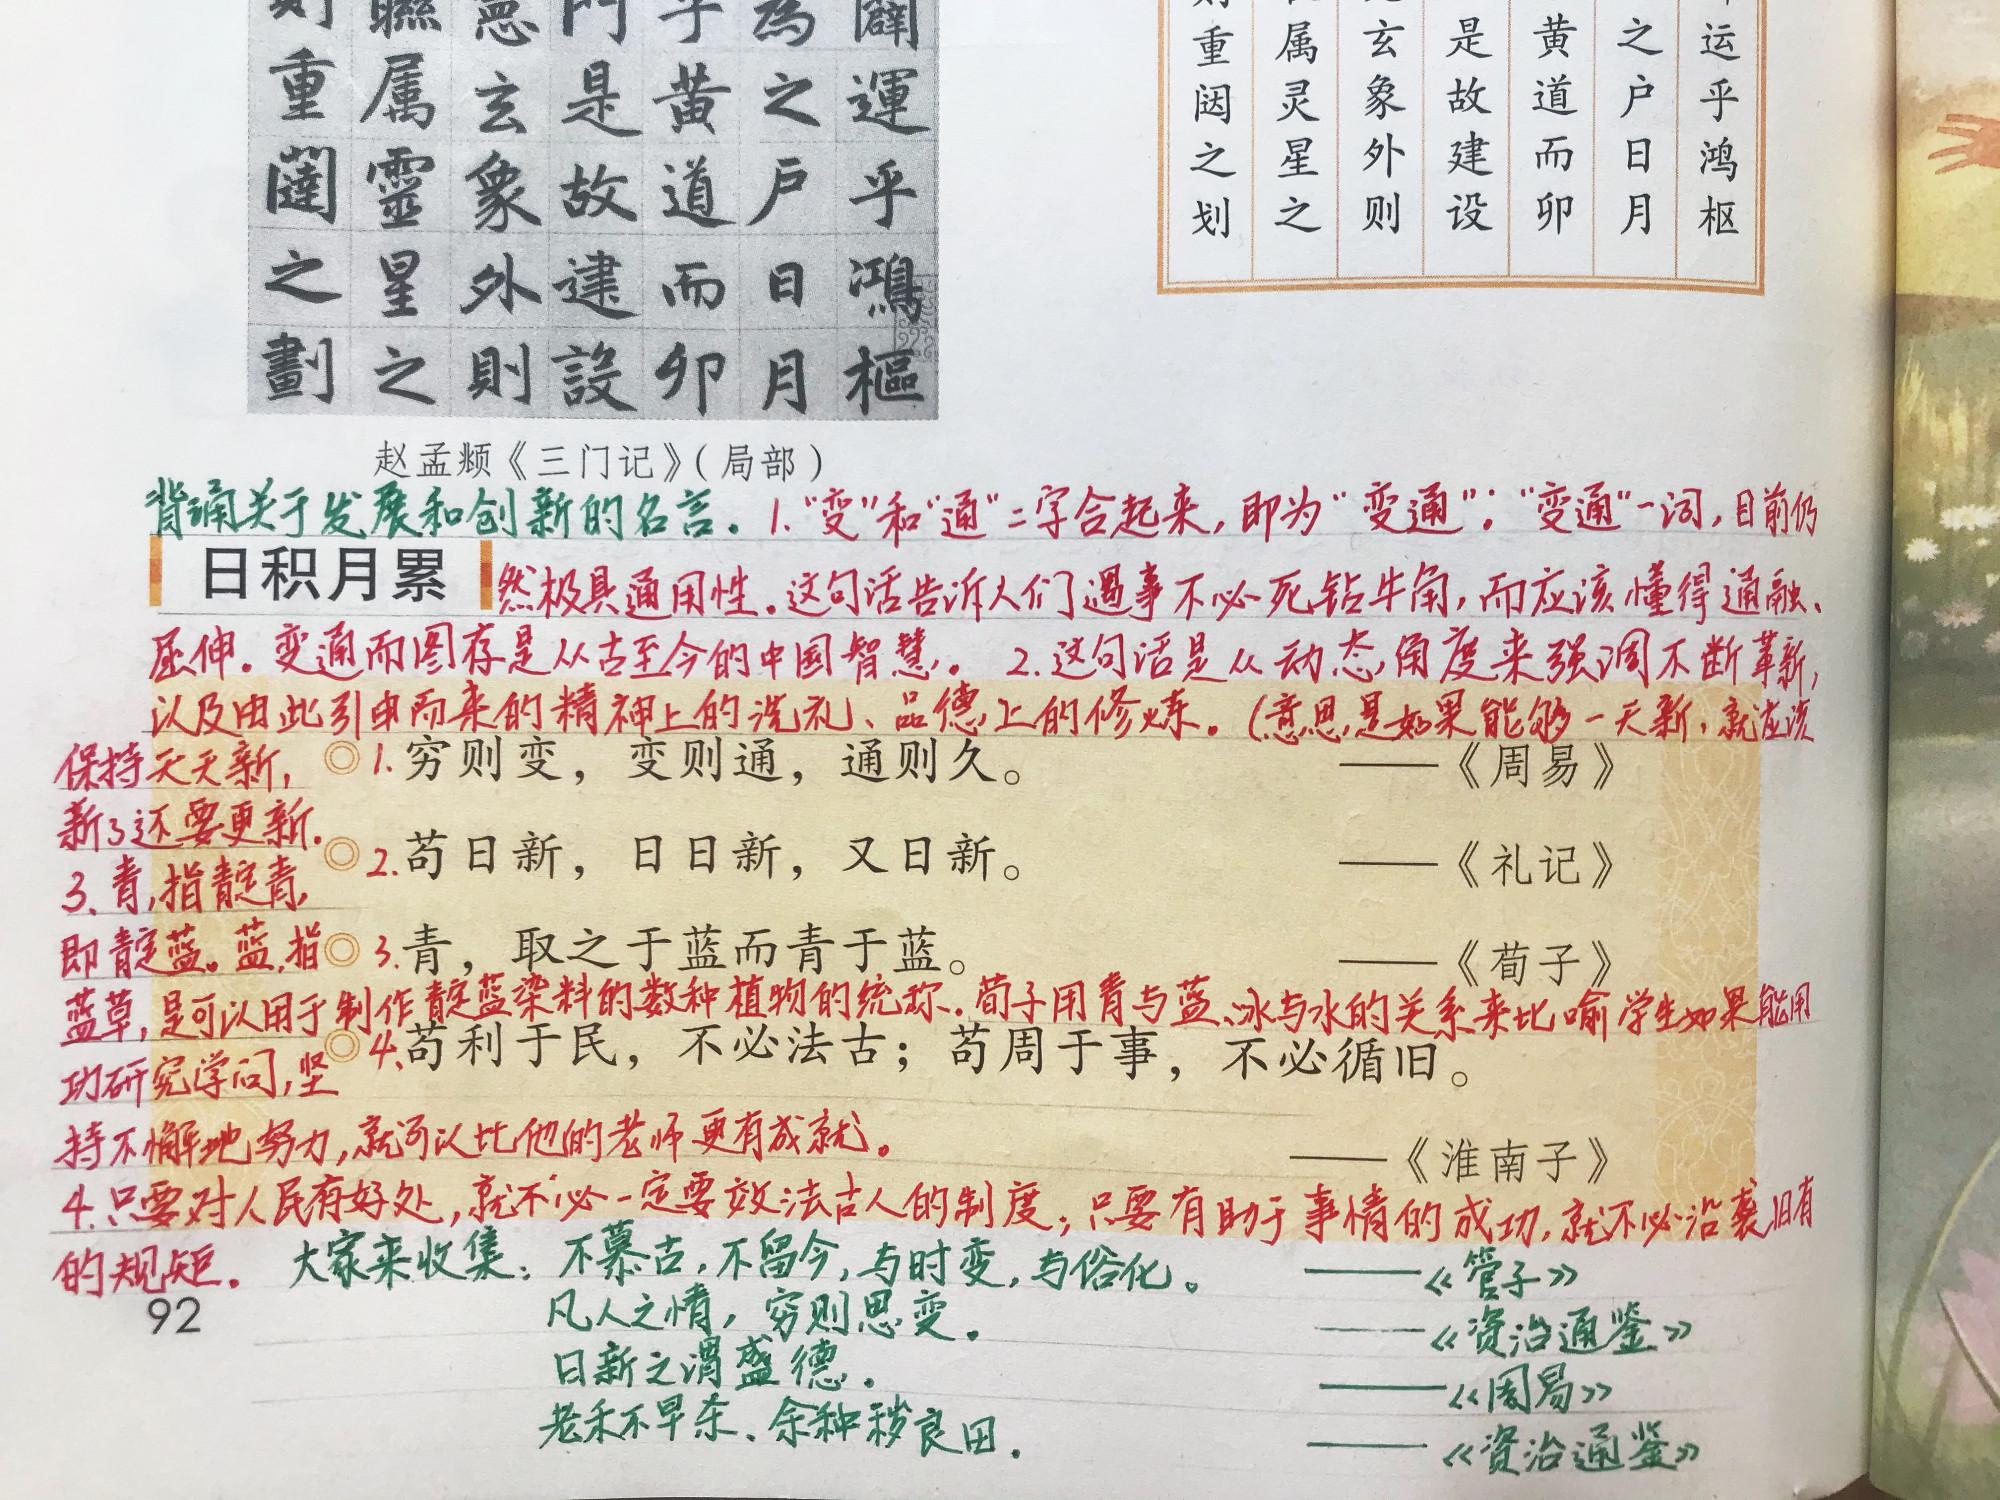 闢運乎鴻樞
為之户日月
黄道而卯
門是故建設
玄象外則
聯属靈星之
則重闥之劃
运乎鸿枢
之户日月
黄道而卯
是故建设
玄象外则
属灵星之
重闼之划
赵孟頫《三门记》（局部）
背诵关于发展和创新的名言。1."变"和"通"二字合起来，即为"变通"；"变通"一词，目前仍
日积月累
然极具通用性。这句话告诉人们遇事不必死钻牛角，而应该懂得通融、
屈伸。变通而图存是从古至今的中国智慧。 2.这句话是从动态角度来强调不断革新，
以及由此引申而来的精神上的洗礼、品德上的修炼。（意思是如果能够一天新，就应该
保持天天新，
新了还要更新。
◎1.穷则变，变则通，通则久。 ——《周易》
◎2.苟日新，日日新，又日新。 ——《礼记》
3、青，指靛青，
即靛蓝。蓝，指
◎3.青，取之于蓝而青于蓝。 ——《荀子》
蓝草，是可以用于制作靛蓝染料的数种植物的统称。荀子用青与蓝、冰与水的关系来比喻学生如果能用
◎4.苟利于民，不必法古；苟周于事，不必循旧。
功研究学问，坚
持不懈地努力，就可以比他的老师更有成就。
——《淮南子》
4.只要对人民有好处，就不必一定要效法古人的制度；只要有助于事情的成功，就不必沿袭旧有
的规矩。 大家来收集：不慕古，不留今，与时变，与俗化。 ——《管子》
92
凡人之情，穷则思变。 ——《资治通鉴》
日新之谓盛德。 ——《周易》
老禾不早杀、余种秽良田。 ——《资治通鉴》